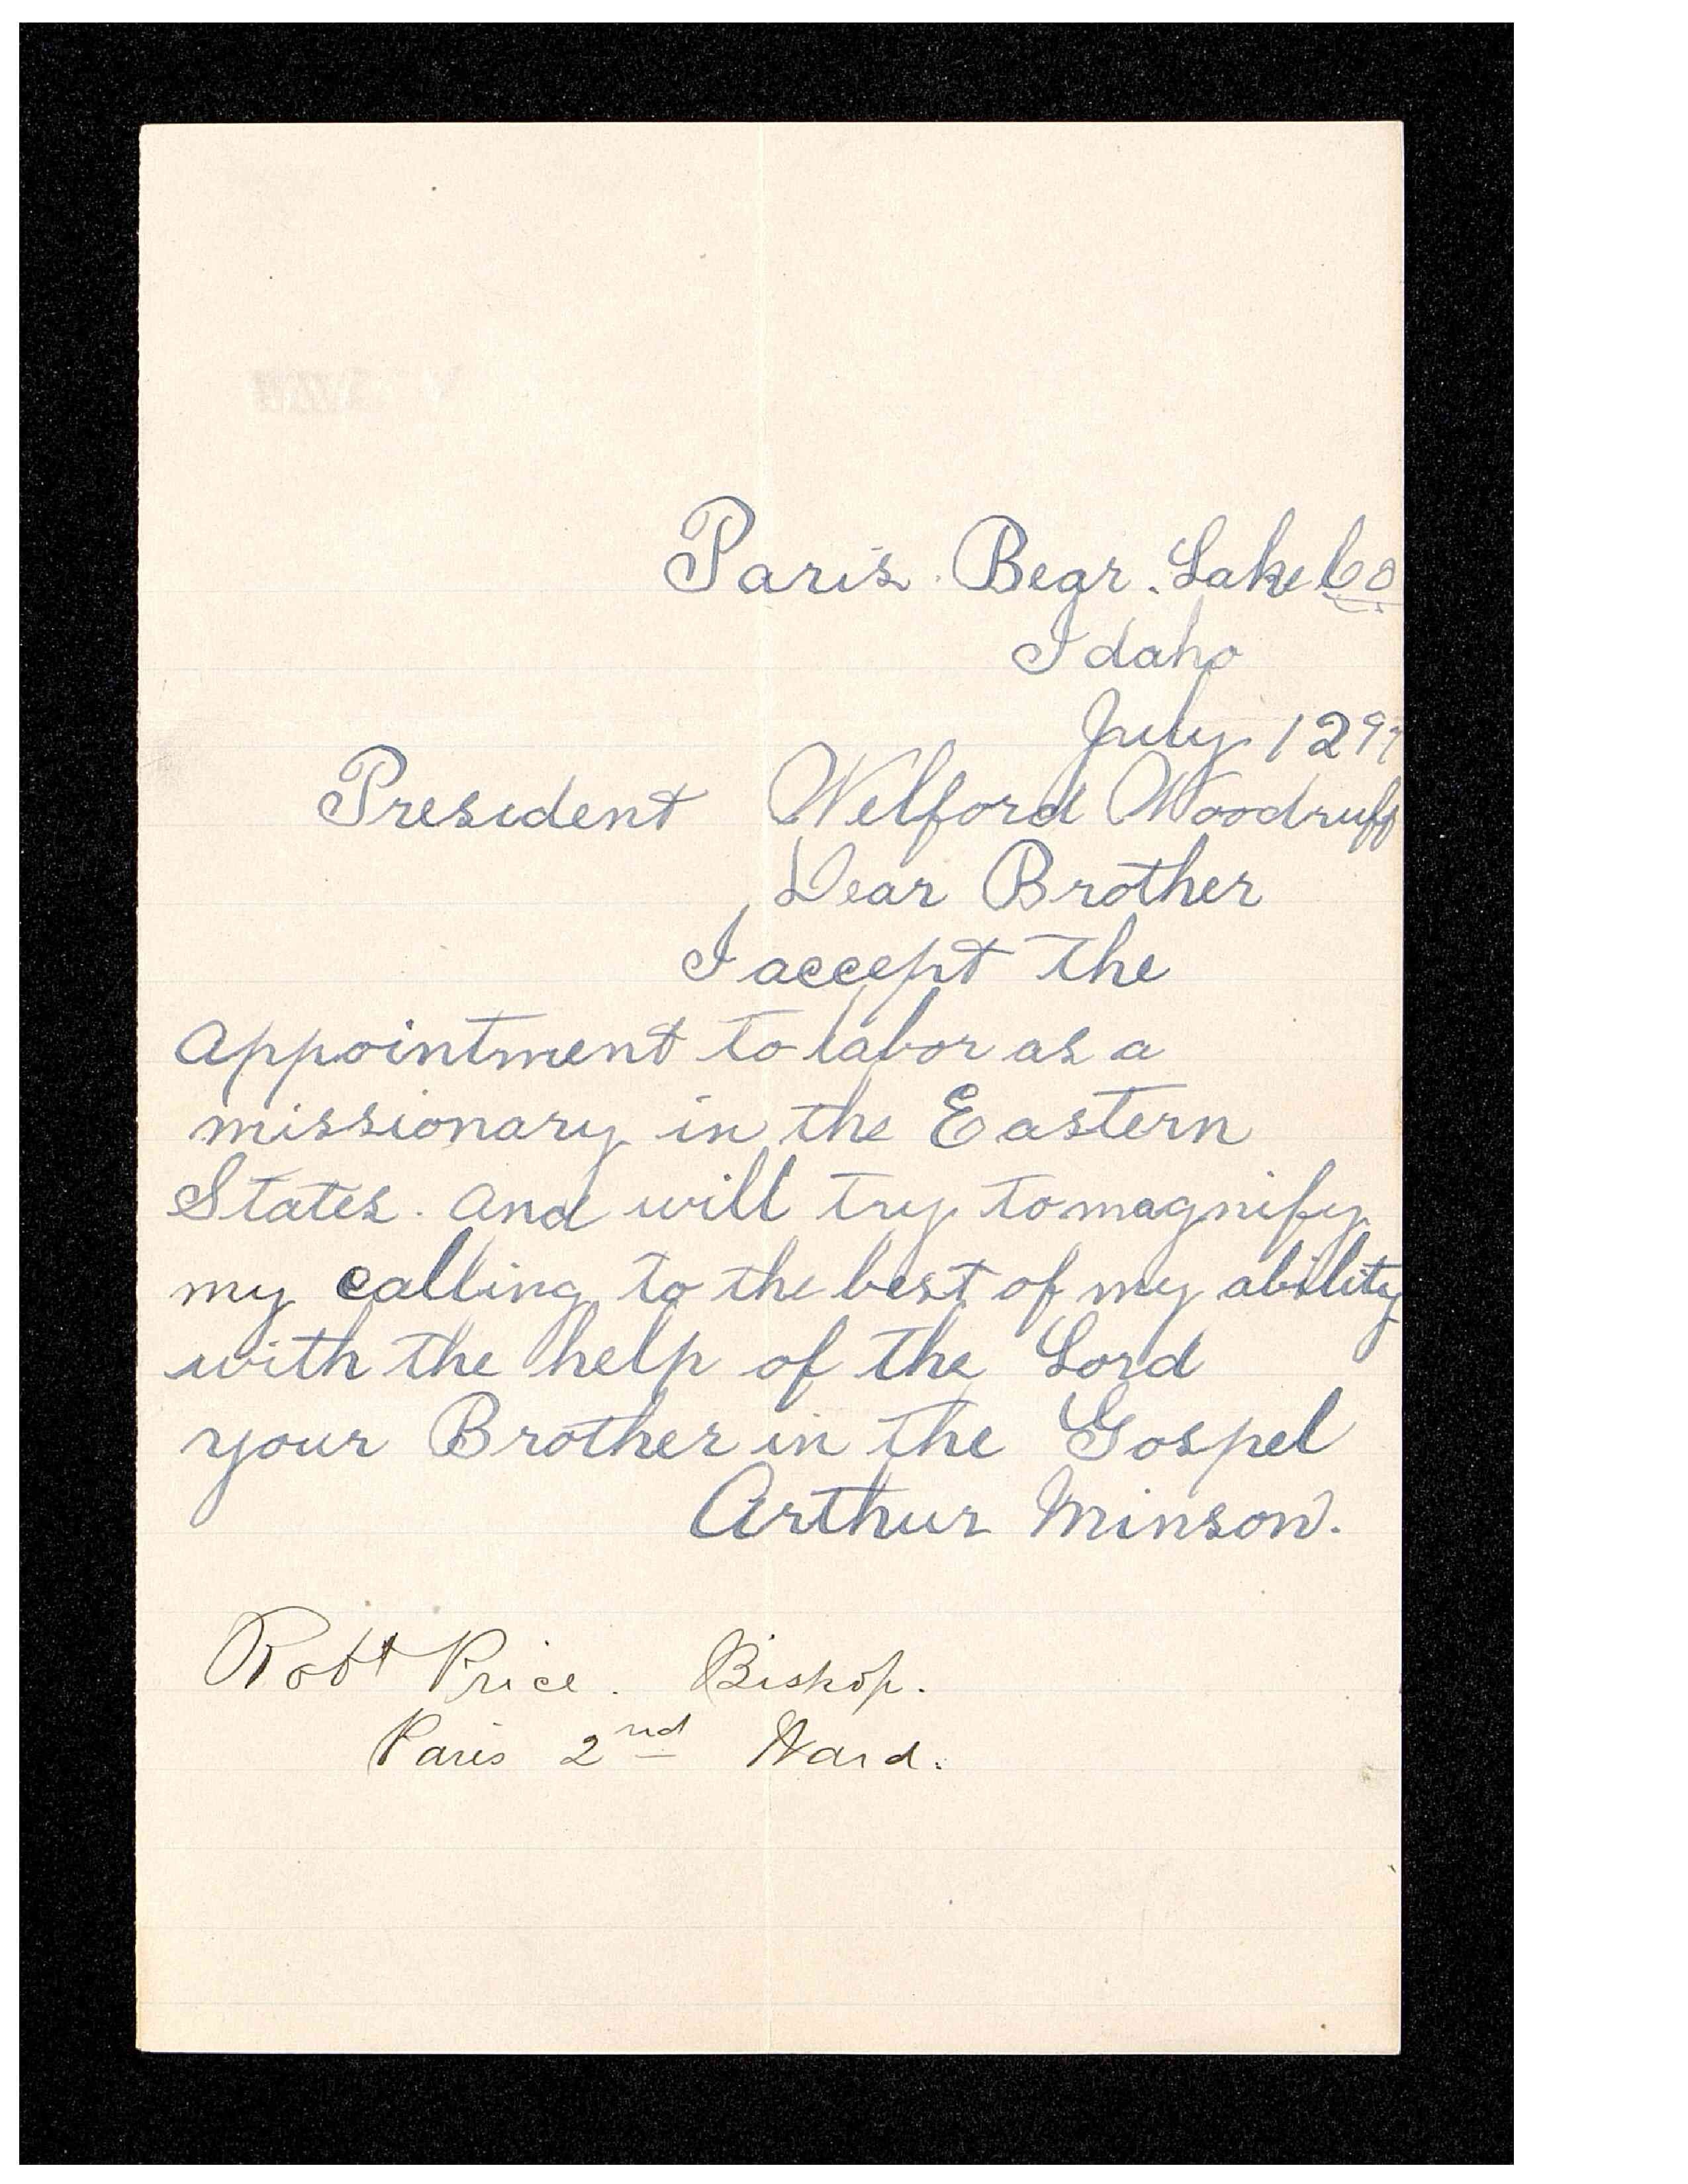 Paris. Bear. Lake Co
Idaho
July 12 97
President Welford Woodruff
Dear Brother
I accept the
appointment to labor as a
missionary in the Eastern
States. and will try to magnify
my calling to the best of my ability
with the help of the Lord
your Brother in the Gospel
Arthur Minson.
Robt Price. Bishop.
Paris 2nd Ward.